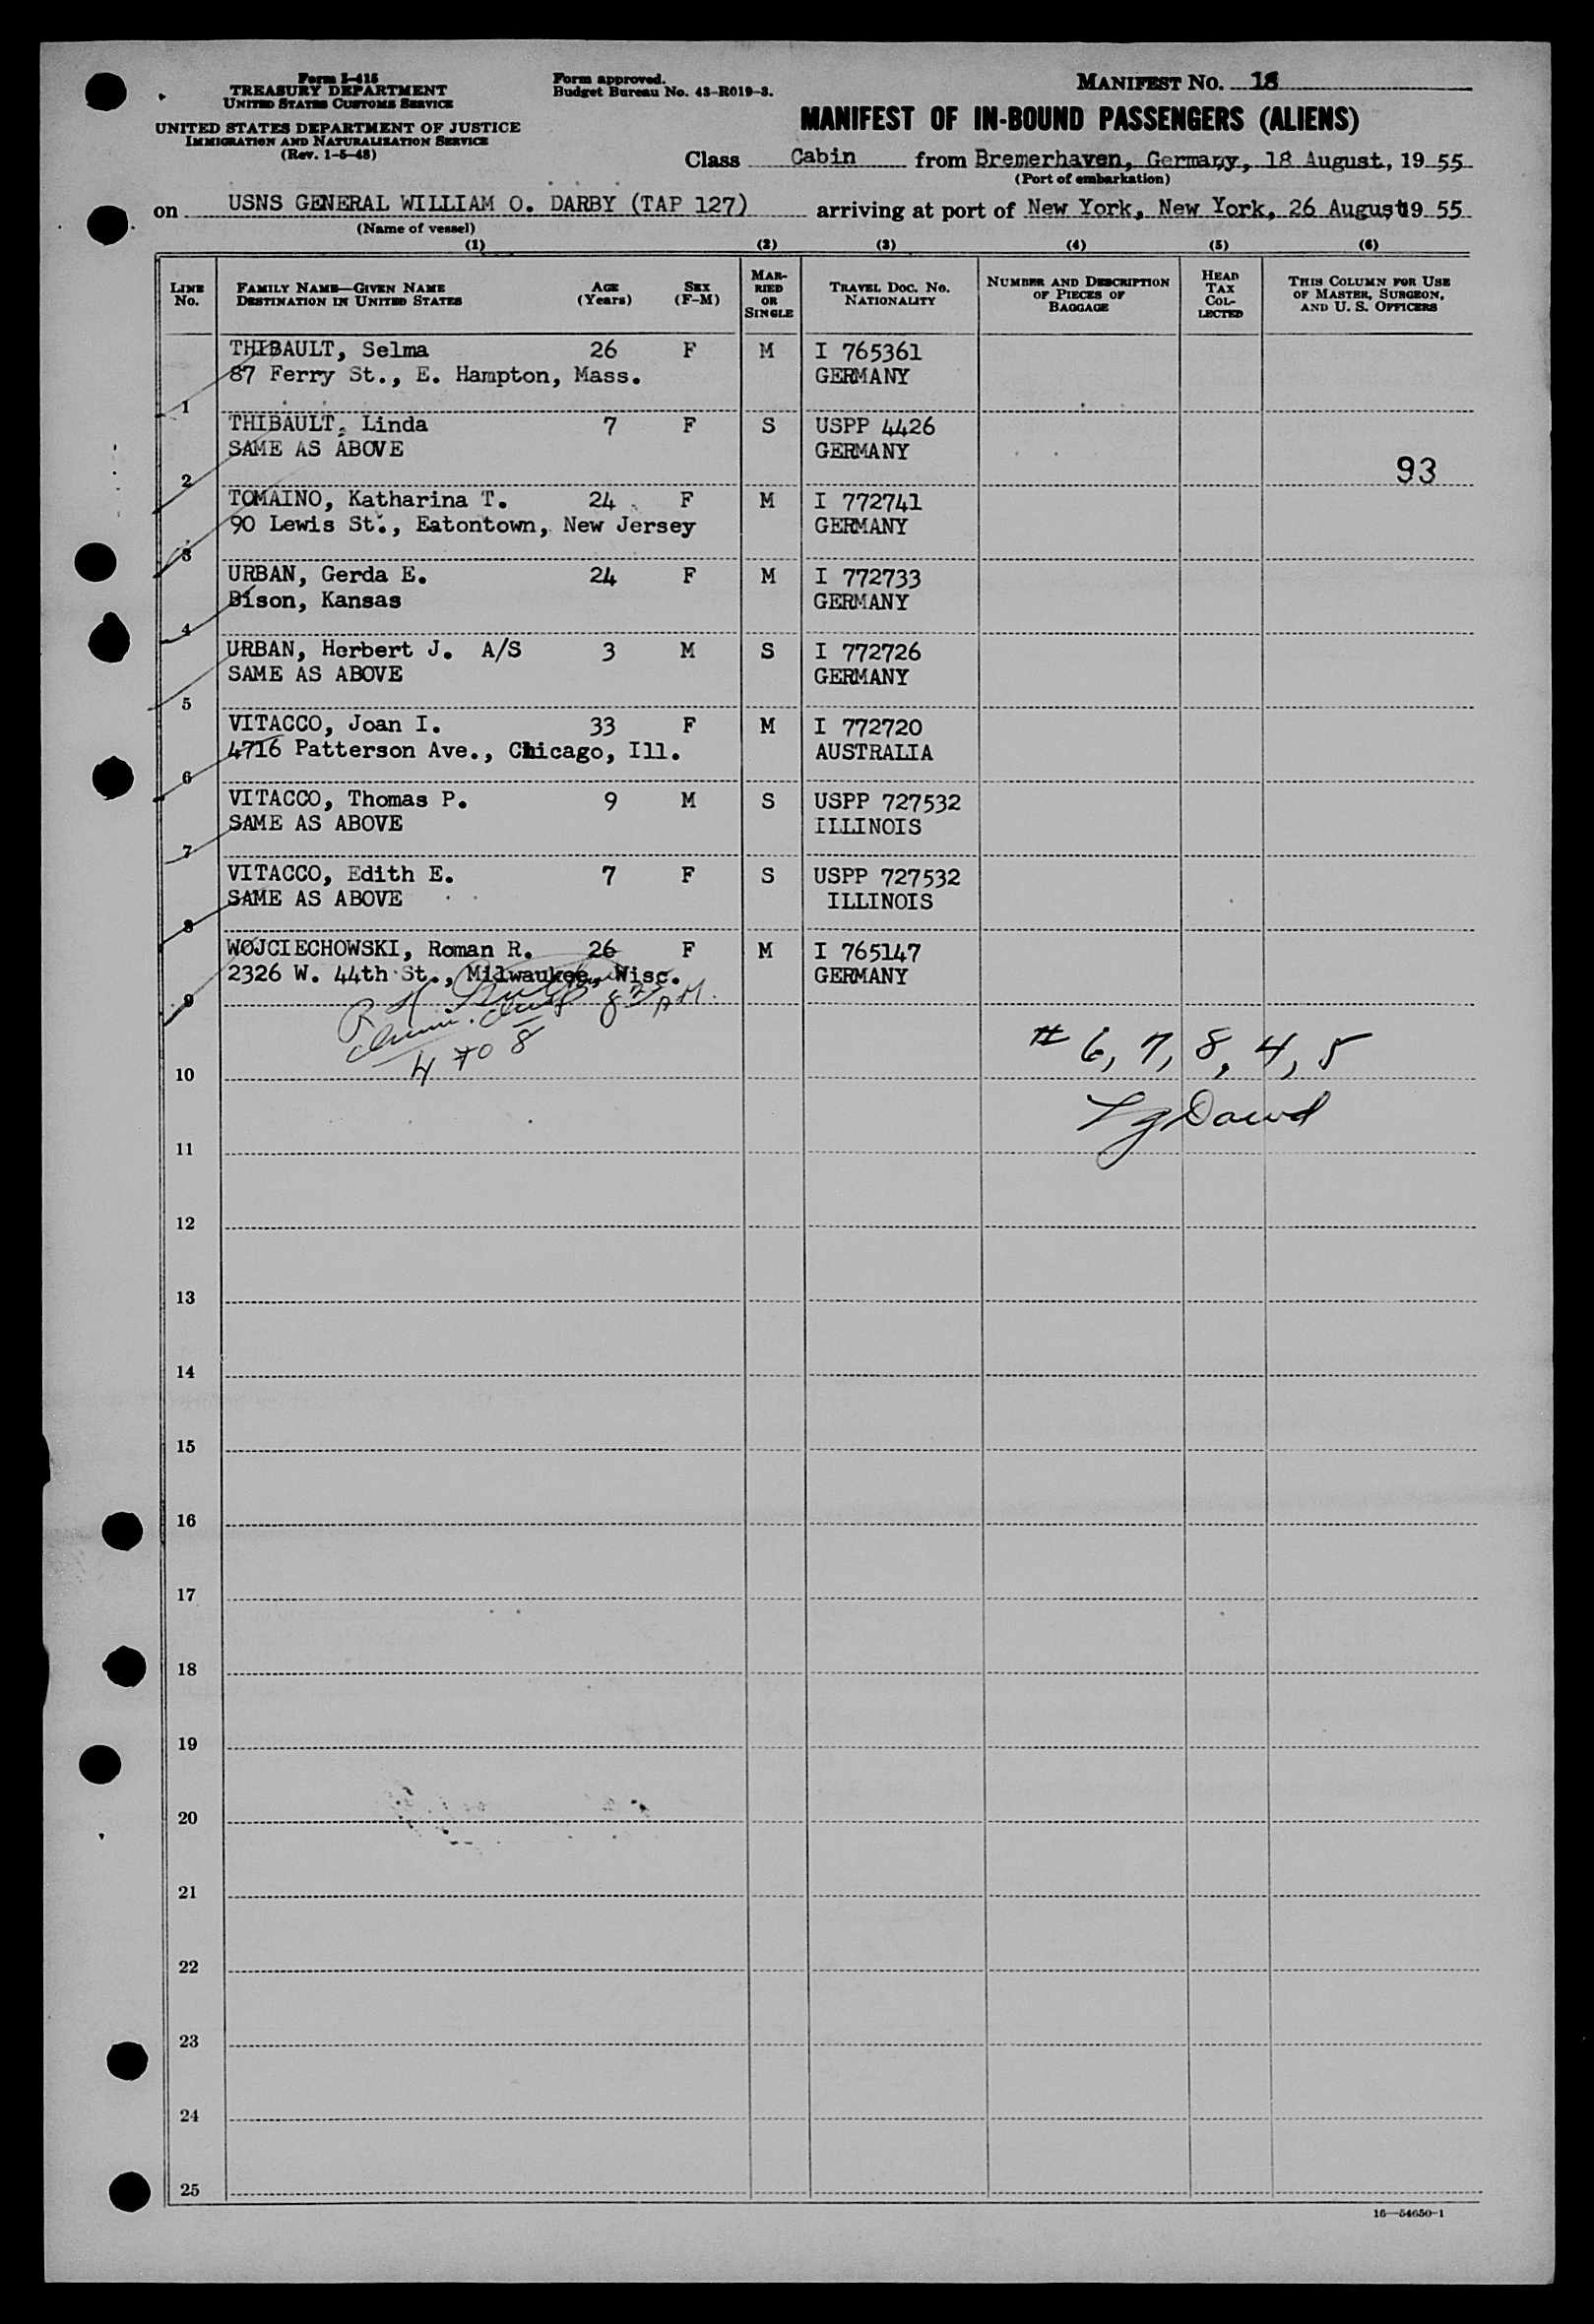 Form I-415
TREASURY DEPARTMENT
UNITED STATES CUSTOMS SERVICE
UNITED STATES DEPARTMENT OF JUSTICE
IMMIGRATION AND NATURALIZATION SERVICE
(Rev. 1-5-48)
Form approved.
Budget Bureau No. 43-R019-3.
MANIFEST NO. 18
MANIFEST OF IN-BOUND PASSENGERS (ALIENS)
Class Cabin from Bremerhaven, Germany, 18 August, 19 55
(Port of embarkation)
on USNS GENERAL WILLIAM O. DARBY (TAP 127) arriving at port of New York, New York, 26 August, 19 55
(Name of vessel)
(1) (2) (3) (4) (5) (6)
LINE No. FAMILY NAME—GIVEN NAME DESTINATION IN UNITED STATES AGE (Years) SEX (F-M) MARRIED OR SINGLE TRAVEL DOC. NO. NATIONALITY NUMBER AND DESCRIPTION OF PIECES OF BAGGAGE HEAD TAX COLLECTED THIS COLUMN FOR USE OF MASTER, SURGEON, AND U. S. OFFICERS
THIBAULT, Selma 26 F M I 765361
87 Ferry St., E. Hampton, Mass. GERMANY
1
THIBAULT, Linda 7 F S USPP 4426
SAME AS ABOVE GERMANY
93
2
TOMAINO, Katharina T. 24 F M I 772741
90 Lewis St., Eatontown, New Jersey GERMANY
3
URBAN, Gerda E. 24 F M I 772733
Bison, Kansas GERMANY
4
URBAN, Herbert J. A/S 3 M S I 772726
SAME AS ABOVE GERMANY
5
VITACCO, Joan I. 33 F M I 772720
4716 Patterson Ave., Chicago, Ill. AUSTRALIA
6
VITACCO, Thomas P. 9 M S USPP 727532
SAME AS ABOVE ILLINOIS
7
VITACCO, Edith E. 7 F S USPP 727532
SAME AS ABOVE ILLINOIS
8
WOJCIECHOWSKI, Roman R. 26 F M I 765147
2326 W. 44th St., Milwaukee, Wisc. GERMANY
9
# 6, 7, 8, 4, 5
10
11
12
13
14
15
16
17
18
19
20
21
22
23
24
25
16—54650-1